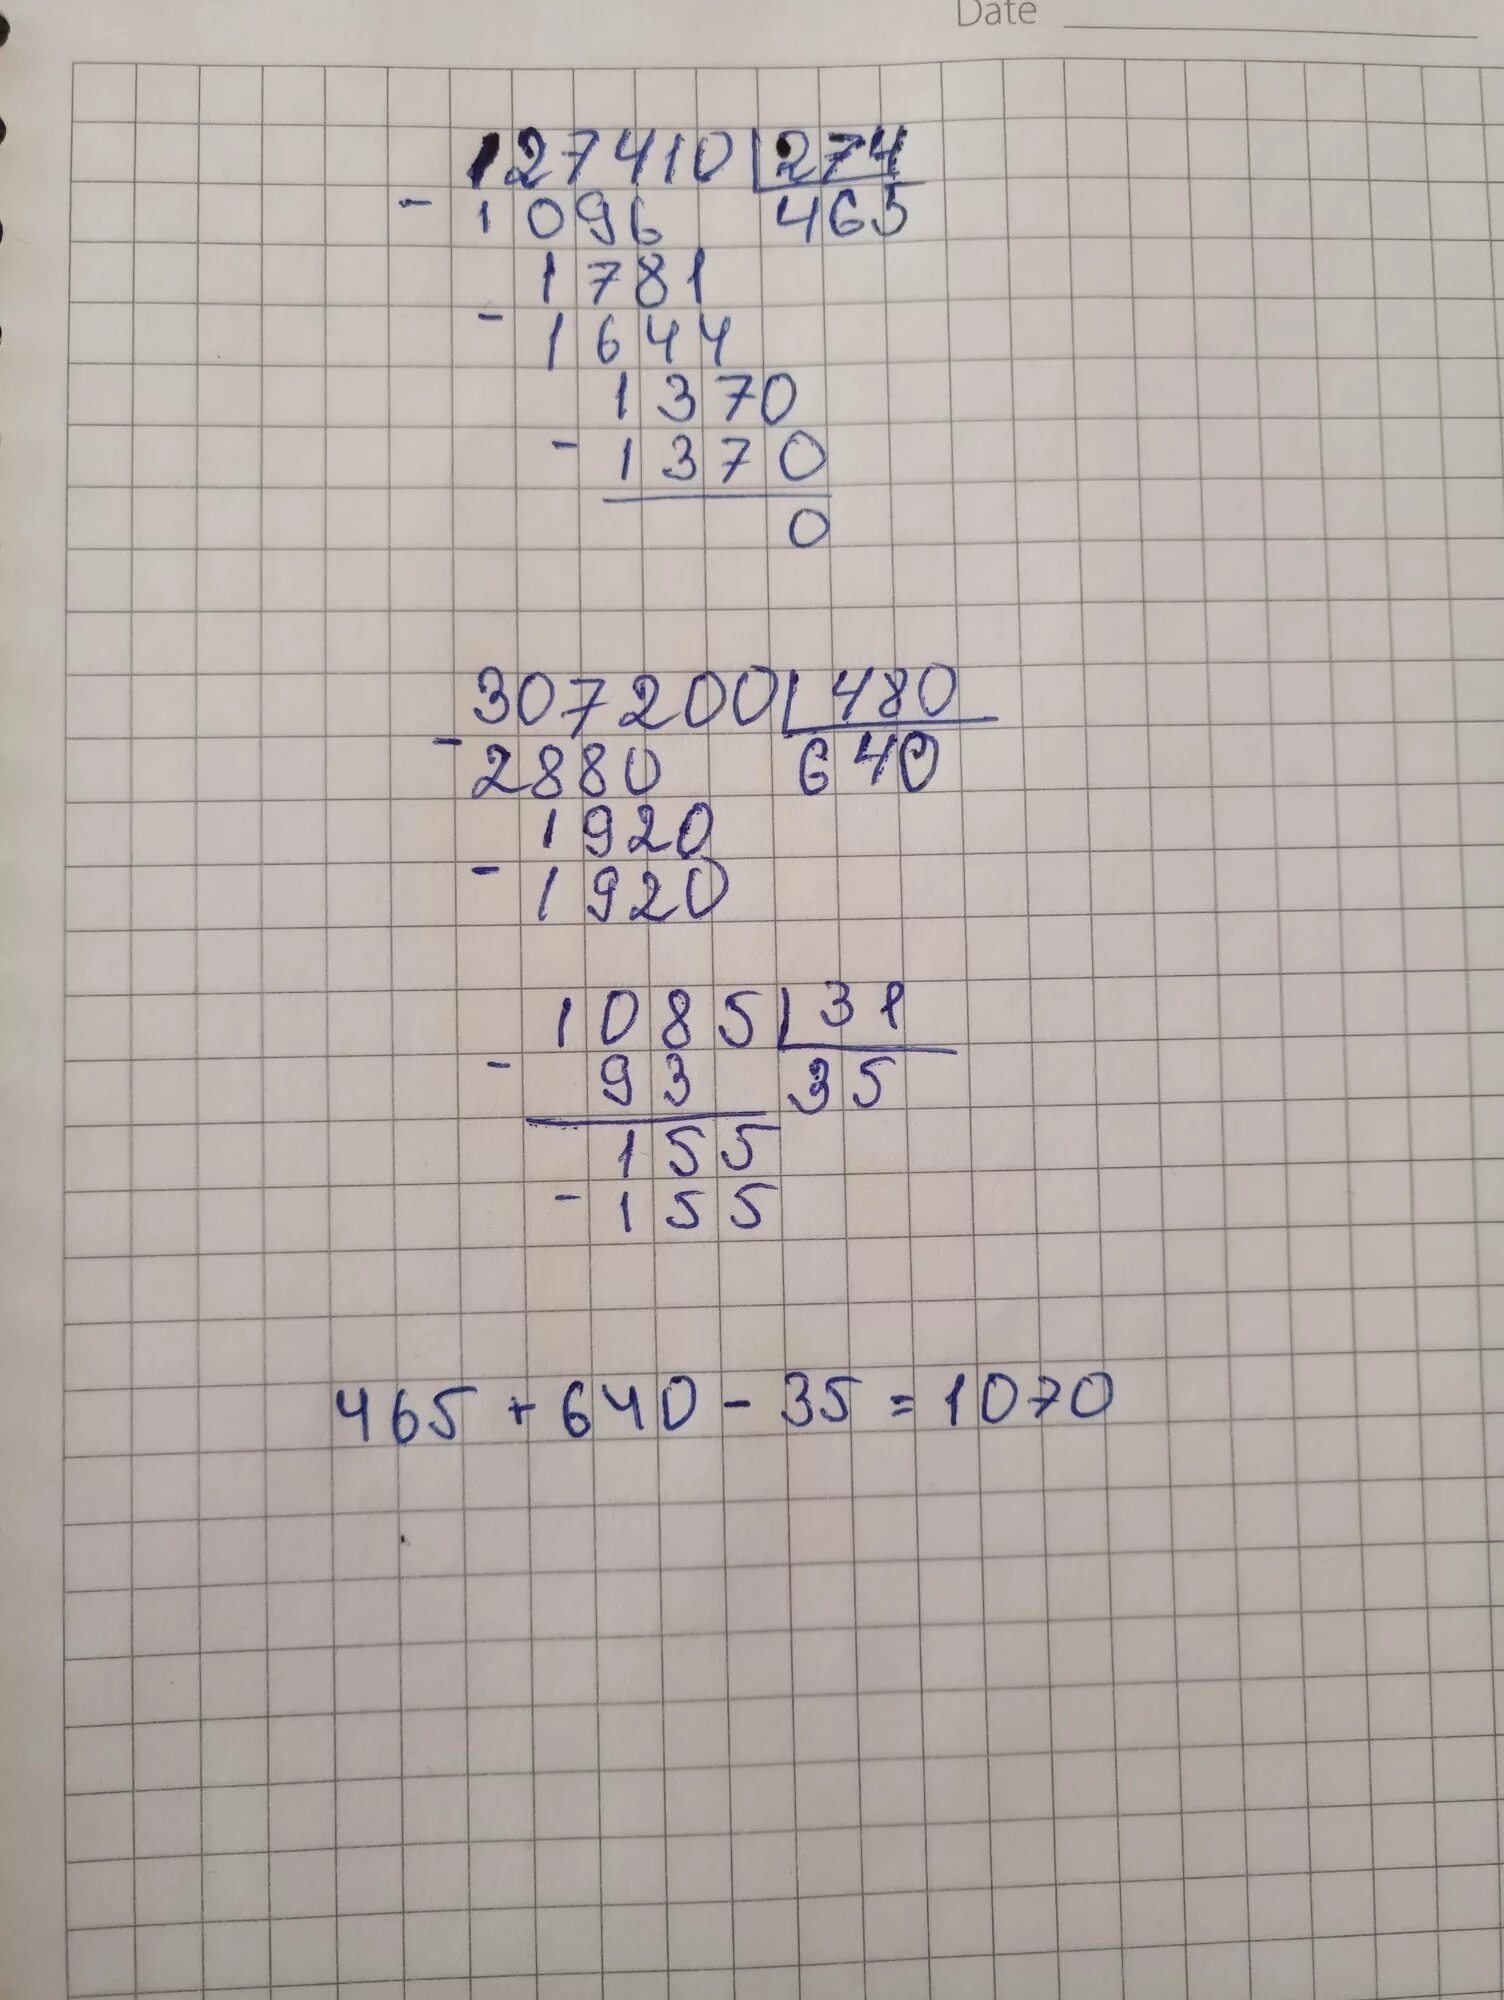 Date
127410 274
- 1096 465
1781
- 1644
1370
- 1370
0
307200 480
- 2880 640
1920
- 1920
1085 31
- 93 35
155
- 155
465 + 640 - 35 = 1070